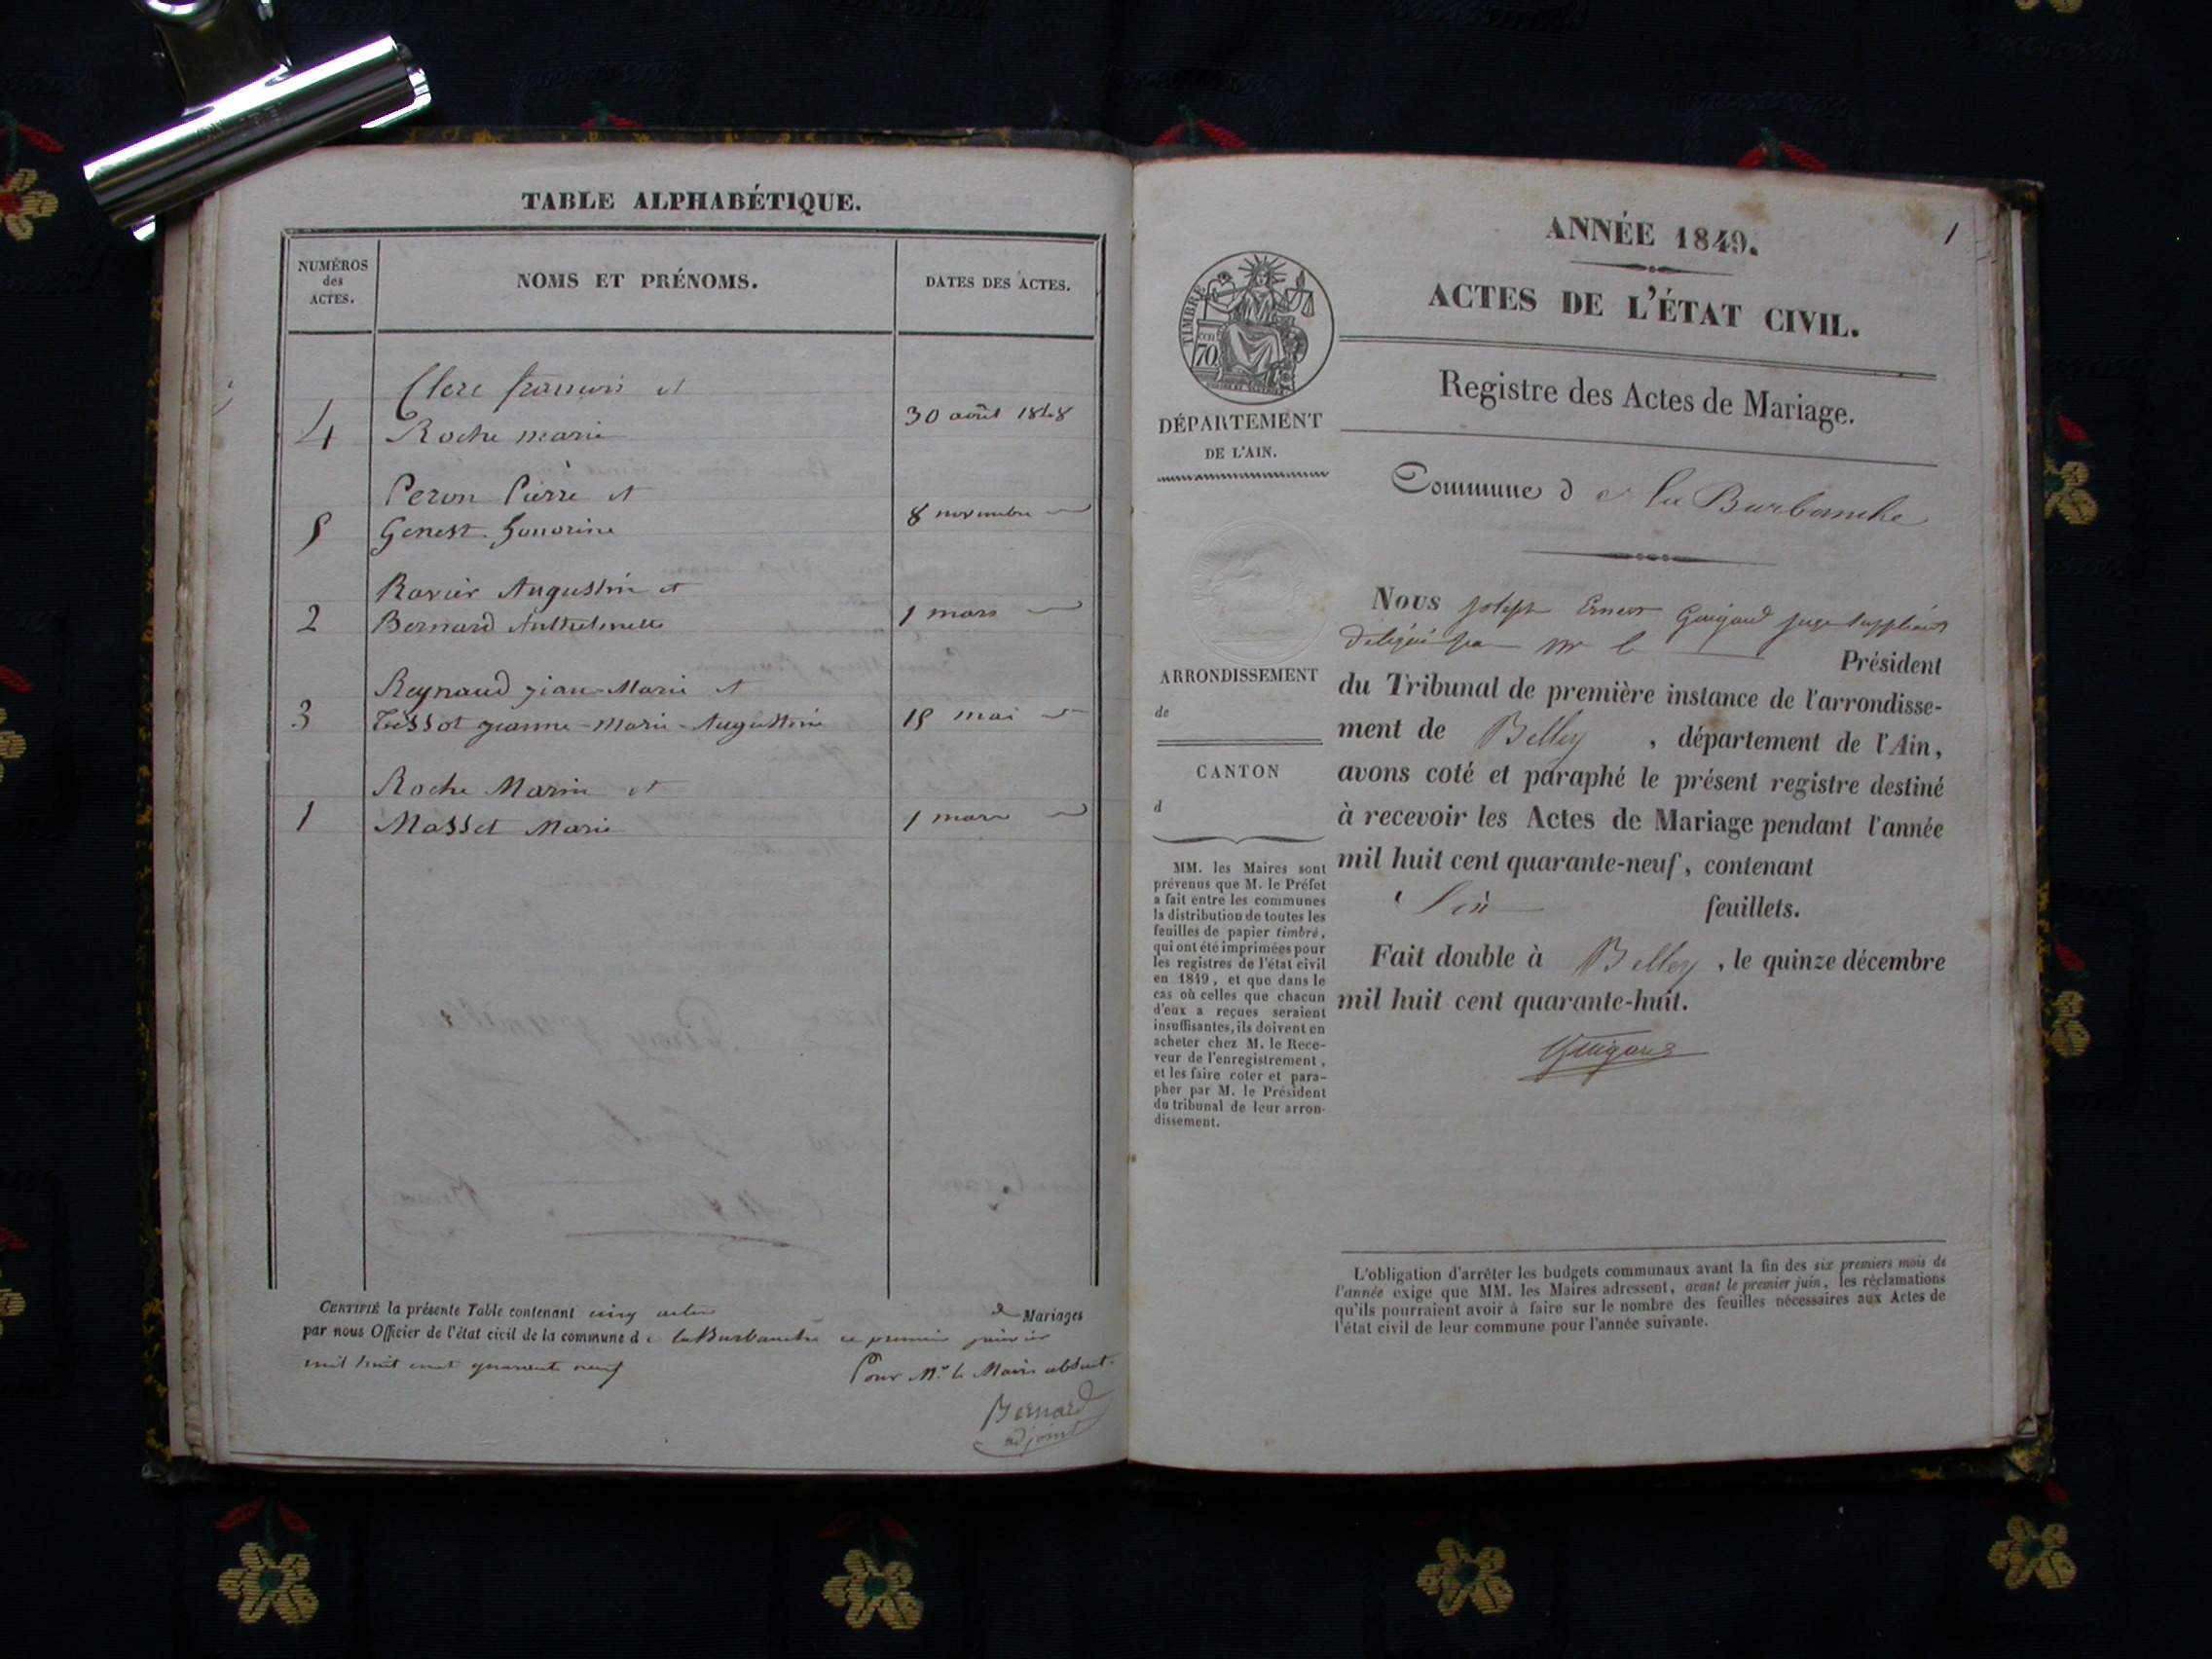 TABLE ALPHABÉTIQUE.
NUMÉROS
des
ACTES.
NOMS ET PRÉNOMS.
DATES DES ACTES.
Clerc francois et
4 Roche marie 30 août 1848
Peron Pierre et
5 Genest 8 novembre
Ravier Augustin et
2 Bernard Anthelmette 1 mars
Reynaud jean-Marie et
3 Tissot jeanne-Marie-Augustine 15 mai
Roche Marin et
1 Masset Marie 1 mars
CERTIFIÉ la présente Table contenant cinq actes de Mariages
par nous Officier de l'état civil de la commune de la Burbanche ce premier janvier
mil huit cent quarante neuf Pour Mr. le Maire absent.
Bernard
adjoint
1
ANNÉE 1849.
ACTES DE L'ÉTAT CIVIL.
Registre des Actes de Mariage.
TIMBRE
70
DÉPARTEMENT
DE L'AIN.
Commune de la Burbanche
Nous joseph Ernest Guigard juge suppléant
délégué par Mr le Président
du Tribunal de première instance de l'arrondisse-
ment de Belley, département de l'Ain,
avons coté et paraphé le présent registre destiné
à recevoir les Actes de Mariage pendant l'année
mil huit cent quarante-neuf, contenant
Six feuillets.
Fait double à Belley, le quinze décembre
mil huit cent quarante-huit.
Guigard
ARRONDISSEMENT
de
CANTON
d
MM. les Maires sont
prévenus que M. le Préfet
a fait entre les communes
la distribution de toutes les
feuilles de papier timbré,
qui ont été imprimées pour
les registres de l'état civil
en 1849, et que dans le
cas où celles que chacun
d'eux a reçues seraient
insuffisantes, ils doivent en
acheter chez M. le Rece-
veur de l'enregistrement,
et les faire coter et para-
pher par M. le Président
du tribunal de leur arron-
dissement.
L'obligation d'arrêter les budgets communaux avant la fin des six premiers mois de
l'année exige que MM. les Maires adressent, avant le premier juin, les réclamations
qu'ils pourraient avoir à faire sur le nombre des feuilles nécessaires aux Actes de
l'état civil de leur commune pour l'année suivante.